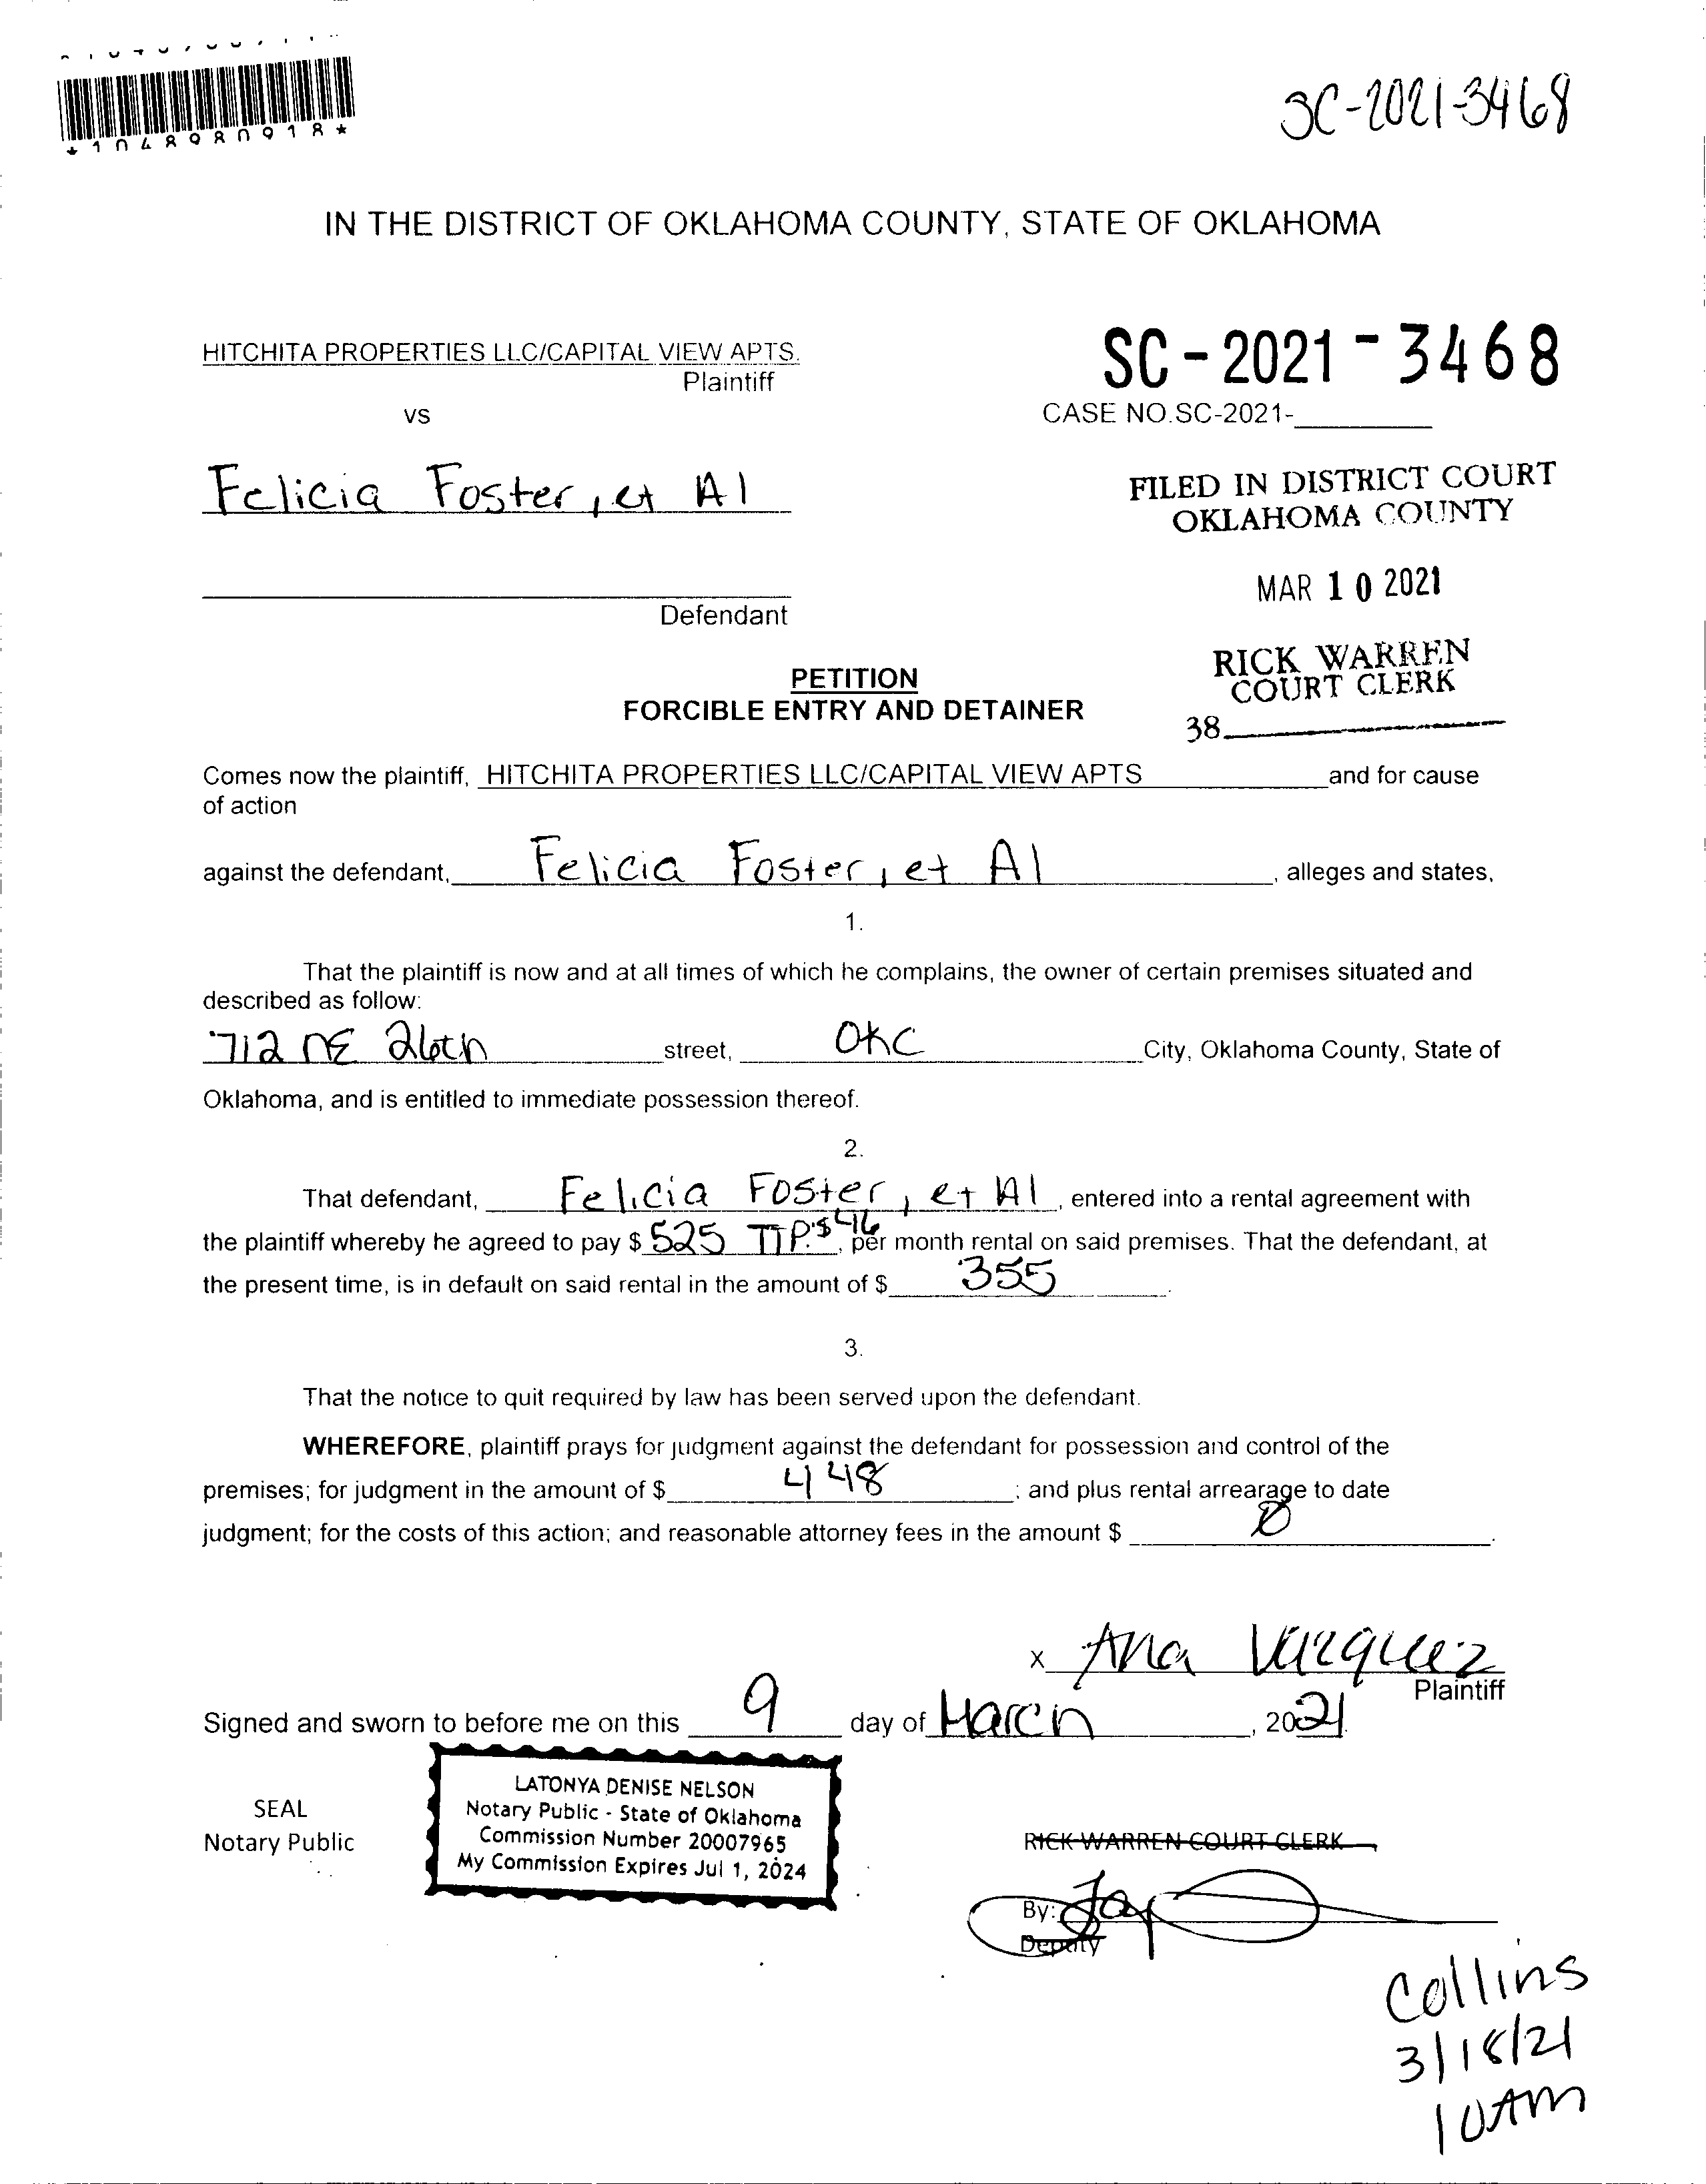 *1048980918*
SC-2021-3468
IN THE DISTRICT OF OKLAHOMA COUNTY, STATE OF OKLAHOMA
HITCHITA PROPERTIES LLC/CAPITAL VIEW APTS.
Plaintiff
SC-2021-3468
vs
CASE NO.SC-2021-
Felicia Foster, et Al
FILED IN DISTRICT COURT
OKLAHOMA COUNTY
MAR 10 2021
Defendant
RICK WARREN
COURT CLERK
38
PETITION
FORCIBLE ENTRY AND DETAINER
Comes now the plaintiff, HITCHITA PROPERTIES LLC/CAPITAL VIEW APTS and for cause
of action
against the defendant, Felicia Foster, et Al, alleges and states,
1.
That the plaintiff is now and at all times of which he complains, the owner of certain premises situated and
described as follow:
712 NE 26th street, OKC City, Oklahoma County, State of
Oklahoma, and is entitled to immediate possession thereof.
2.
That defendant, Felicia Foster, et Al, entered into a rental agreement with
the plaintiff whereby he agreed to pay $ 525 TTP:$46, per month rental on said premises. That the defendant, at
the present time, is in default on said rental in the amount of $ 355.
3.
That the notice to quit required by law has been served upon the defendant.
WHEREFORE, plaintiff prays for judgment against the defendant for possession and control of the
premises; for judgment in the amount of $ 448; and plus rental arrearage to date
judgment; for the costs of this action; and reasonable attorney fees in the amount $ 0.
x Ana Vazquez
Plaintiff
Signed and sworn to before me on this 9 day of March, 2021.
LATONYA DENISE NELSON
Notary Public - State of Oklahoma
Commission Number 20007965
My Commission Expires Jul 1, 2024
SEAL
Notary Public
RICK WARREN COURT CLERK
By:
Deputy
Collins
3/18/21
10AM